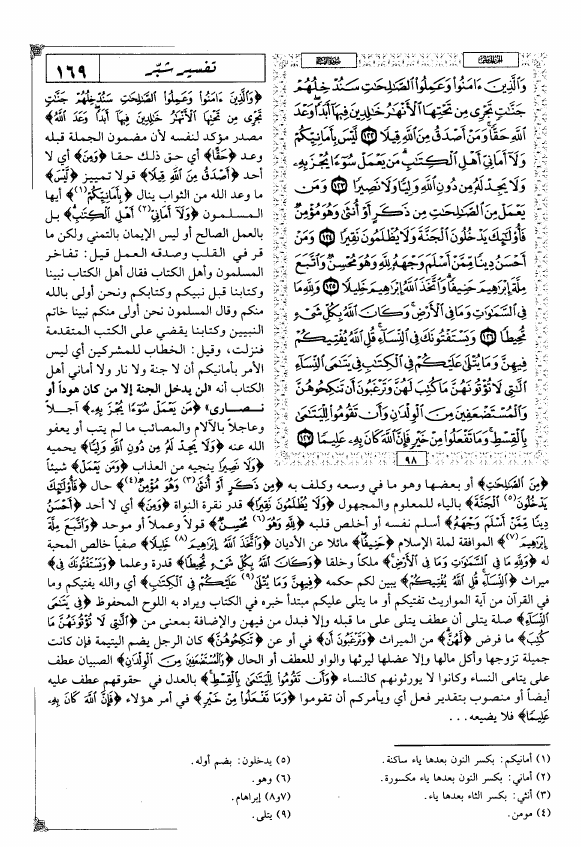 تفسير شبّر
١٦٩
سورة النساء
وَالَّذِينَ ءَامَنُوا وَعَمِلُوا الصَّالِحَاتِ سَنُدْخِلُهُمْ
جَنَّاتٍ تَجْرِي مِن تَحْتِهَا الْأَنْهَارُ خَالِدِينَ فِيهَا أَبَدًا وَعْدَ
اللَّهِ حَقًّا وَمَنْ أَصْدَقُ مِنَ اللَّهِ قِيلًا ١٢٢ لَّيْسَ بِأَمَانِيِّكُمْ
وَلَا أَمَانِيِّ أَهْلِ الْكِتَابِ مَن يَعْمَلْ سُوءًا يُجْزَ بِهِ
وَلَا يَجِدْ لَهُ مِن دُونِ اللَّهِ وَلِيًّا وَلَا نَصِيرًا ١٢٣ وَمَن
يَعْمَلْ مِنَ الصَّالِحَاتِ مِن ذَكَرٍ أَوْ أُنثَى وَهُوَ مُؤْمِنٌ
فَأُولَئِكَ يَدْخُلُونَ الْجَنَّةَ وَلَا يُظْلَمُونَ نَقِيرًا ١٢٤ وَمَنْ
أَحْسَنُ دِينًا مِّمَّنْ أَسْلَمَ وَجْهَهُ لِلَّهِ وَهُوَ مُحْسِنٌ وَاتَّبَعَ
مِلَّةَ إِبْرَاهِيمَ حَنِيفًا وَاتَّخَذَ اللَّهُ إِبْرَاهِيمَ خَلِيلًا ١٢٥ وَلِلَّهِ مَا
فِي السَّمَاوَاتِ وَمَا فِي الْأَرْضِ وَكَانَ اللَّهُ بِكُلِّ شَيْءٍ
مُّحِيطًا ١٢٦ وَيَسْتَفْتُونَكَ فِي النِّسَاءِ قُلِ اللَّهُ يُفْتِيكُمْ
فِيهِنَّ وَمَا يُتْلَى عَلَيْكُمْ فِي الْكِتَابِ فِي يَتَامَى النِّسَاءِ
الَّتِي لَا تُؤْتُونَهُنَّ مَا كُتِبَ لَهُنَّ وَتَرْغَبُونَ أَن تَنكِحُوهُنَّ
وَالْمُسْتَضْعَفِينَ مِنَ الْوِلْدَانِ وَأَن تَقُومُوا لِلْيَتَامَى
بِالْقِسْطِ وَمَا تَفْعَلُوا مِنْ خَيْرٍ فَإِنَّ اللَّهَ كَانَ بِهِ عَلِيمًا ١٢٧
٩٨
﴿وَالَّذِينَ ءَامَنُوا وَعَمِلُوا الصَّالِحَاتِ سَنُدْخِلُهُمْ جَنَّاتٍ
تَجْرِي مِن تَحْتِهَا الْأَنْهَارُ خَالِدِينَ فِيهَا أَبَدًا وَعْدَ اللَّهِ﴾
مصدر مؤكد لنفسه لأن مضمون الجملة قبله
وعد ﴿حَقًّا﴾ أي حق ذلك حقا ﴿وَمَنْ﴾ أي لا
أحد ﴿أَصْدَقُ مِنَ اللَّهِ قِيلًا﴾ قولا تمييز ﴿لَّيْسَ﴾
ما وعد الله من الثواب ينال ﴿بِأَمَانِيِّكُمْ﴾(١) أيها
المسلمون ﴿وَلَا أَمَانِيِّ(٢) أَهْلِ الْكِتَابِ﴾ بل
بالعمل الصالح أو ليس الإيمان بالتمني ولكن ما
قر في القلب وصدقه العمل قيل: تفاخر
المسلمون وأهل الكتاب فقال أهل الكتاب نبينا
وكتابنا قبل نبيكم وكتابكم ونحن أولى بالله
منكم وقال المسلمون نحن أولى منكم نبينا خاتم
النبيين وكتابنا يقضي على الكتب المتقدمة
فنزلت، وقيل: الخطاب للمشركين أي ليس
الأمر بأمانيكم أن لا جنة ولا نار ولا أماني أهل
الكتاب أنه ﴿لن يدخل الجنة إلا من كان هوداً أو
نصارى﴾ ﴿مَن يَعْمَلْ سُوءًا يُجْزَ بِهِ﴾ آجلاً
وعاجلاً بالآلام والمصائب ما لم يتب أو يعفو
الله عنه ﴿وَلَا يَجِدْ لَهُ مِن دُونِ اللَّهِ وَلِيًّا﴾ يحميه
﴿وَلَا نَصِيرًا﴾ ينجيه من العذاب ﴿وَمَن يَعْمَلْ﴾ شيئاً
﴿مِنَ الصَّالِحَاتِ﴾ أو بعضها وهو ما في وسعه وكلف به ﴿مِن ذَكَرٍ أَوْ أُنثَى(٣) وَهُوَ مُؤْمِنٌ﴾(٤) حال ﴿فَأُولَئِكَ
يَدْخُلُونَ(٥) الْجَنَّةَ﴾ بالياء للمعلوم والمجهول ﴿وَلَا يُظْلَمُونَ نَقِيرًا﴾ قدر نقرة النواة ﴿وَمَنْ﴾ أي لا أحد ﴿أَحْسَنُ
دِينًا مِّمَّنْ أَسْلَمَ وَجْهَهُ﴾ أسلم نفسه أو أخلص قلبه ﴿لِلَّهِ وَهُوَ(٦) مُحْسِنٌ﴾ قولاً وعملاً أو موحد ﴿وَاتَّبَعَ مِلَّةَ
إِبْرَاهِيمَ﴾(٧) الموافقة لملة الإسلام ﴿حَنِيفًا﴾ مائلا عن الأديان ﴿وَاتَّخَذَ اللَّهُ إِبْرَاهِيمَ(٨) خَلِيلًا﴾ صفياً خالص المحبة
له ﴿وَلِلَّهِ مَا فِي السَّمَاوَاتِ وَمَا فِي الْأَرْضِ﴾ ملكاً وخلقا ﴿وَكَانَ اللَّهُ بِكُلِّ شَيْءٍ مُّحِيطًا﴾ قدرة وعلما ﴿وَيَسْتَفْتُونَكَ فِي﴾
ميراث ﴿النِّسَاءِ قُلِ اللَّهُ يُفْتِيكُمْ﴾ يبين لكم حكمه ﴿فِيهِنَّ وَمَا يُتْلَى(٩) عَلَيْكُمْ فِي الْكِتَابِ﴾ أي الله يفتيكم وما
في القرآن من آية المواريث تفتيكم أو ما يتلى عليكم مبتدأ خبره في الكتاب ويراد به اللوح المحفوظ ﴿فِي يَتَامَى
النِّسَاءِ﴾ صلة يتلى أن عطف يتلى على ما قبله وإلا فبدل من فيهن والإضافة بمعنى من ﴿الَّتِي لَا تُؤْتُونَهُنَّ مَا
كُتِبَ﴾ ما فرض ﴿لَهُنَّ﴾ من الميراث ﴿وَتَرْغَبُونَ أَن﴾ في أو عن ﴿تَنكِحُوهُنَّ﴾ كان الرجل يضم اليتيمة فإن كانت
جميلة تزوجها وأكل مالها وإلا عضلها ليرثها والواو للعطف أو الحال ﴿وَالْمُسْتَضْعَفِينَ مِنَ الْوِلْدَانِ﴾ الصبيان عطف
على يتامى النساء وكانوا لا يورثونهم كالنساء ﴿وَأَن تَقُومُوا لِلْيَتَامَى بِالْقِسْطِ﴾ بالعدل في حقوقهم عطف عليه
أيضاً أو منصوب بتقدير فعل أي ويأمركم أن تقوموا ﴿وَمَا تَفْعَلُوا مِنْ خَيْرٍ﴾ في أمر هؤلاء ﴿فَإِنَّ اللَّهَ كَانَ بِهِ
عَلِيمًا﴾ فلا يضيعه...
(١) أمانيكم: بكسر النون بعدها ياء ساكنة.
(٢) أماني: بكسر النون بعدها ياء مكسورة.
(٣) أنثي: بكسر الثاء بعدها ياء.
(٤) مومن.
(٥) يدخلون: بضم أوله.
(٦) وهو.
(٧و٨) إبراهام.
(٩) يتلى.